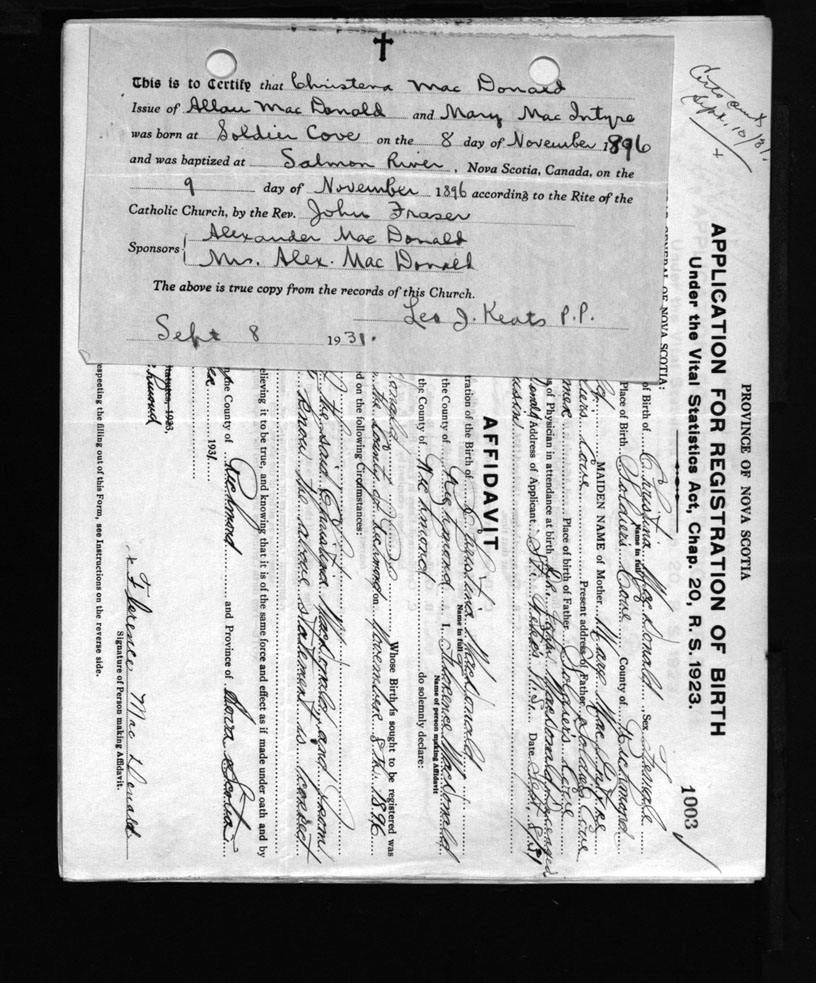 This is to Certify that Christena Mac Donald
Issue of Allan Mac Donald and Mary Mac Intyre
was born at Soldier Cove on the 8 day of November 1896
and was baptized at Salmon River, Nova Scotia, Canada, on the
9 day of November 1896 according to the Rite of the
Catholic Church, by the Rev. John Fraser
Sponsors Alexander Mac Donald
Mrs. Alex. Mac Donald
The above is true copy from the records of this Church.
Leo J. Keats P.P.
Sept 8 1931.
Sept. 10/31.
PROVINCE OF NOVA SCOTIA
APPLICATION FOR REGISTRATION OF BIRTH
Under the Vital Statistics Act, Chap. 20, R. S. 1923.
1003
GENERAL OF NOVA SCOTIA:
of Birth of Christina Mac Donald Sex Female
Name in full
Place of Birth Soldiers Cove County of Richmond
MAIDEN NAME of Mother Mary Mac Intyre
Cove Present address of Father Soldiers Cove
Place of birth of Father Soldiers Cove
of Physician in attendance at birth
Address of Applicant St. Peter's N.S. Date Sept. 8/31
AFFIDAVIT
tration of the Birth of Christina MacDonald
Name in full
the County of Richmond I, Florence MacDonald
Name of person making Affidavit
the County of Richmond do solemnly declare:
Whose Birth is sought to be registered was
the County of Richmond on November 8th 1896
d on the following Circumstances:
the said Christina MacDonald, and
know the above statement is correct
elieving it to be true, and knowing that it is of the same force and effect as if made under oath and by
the County of Richmond and Province of Nova Scotia
1931.
Florence Mac Donald
Signature of Person making Affidavit.
especting the filling out of this Form, see Instructions on the reverse side.